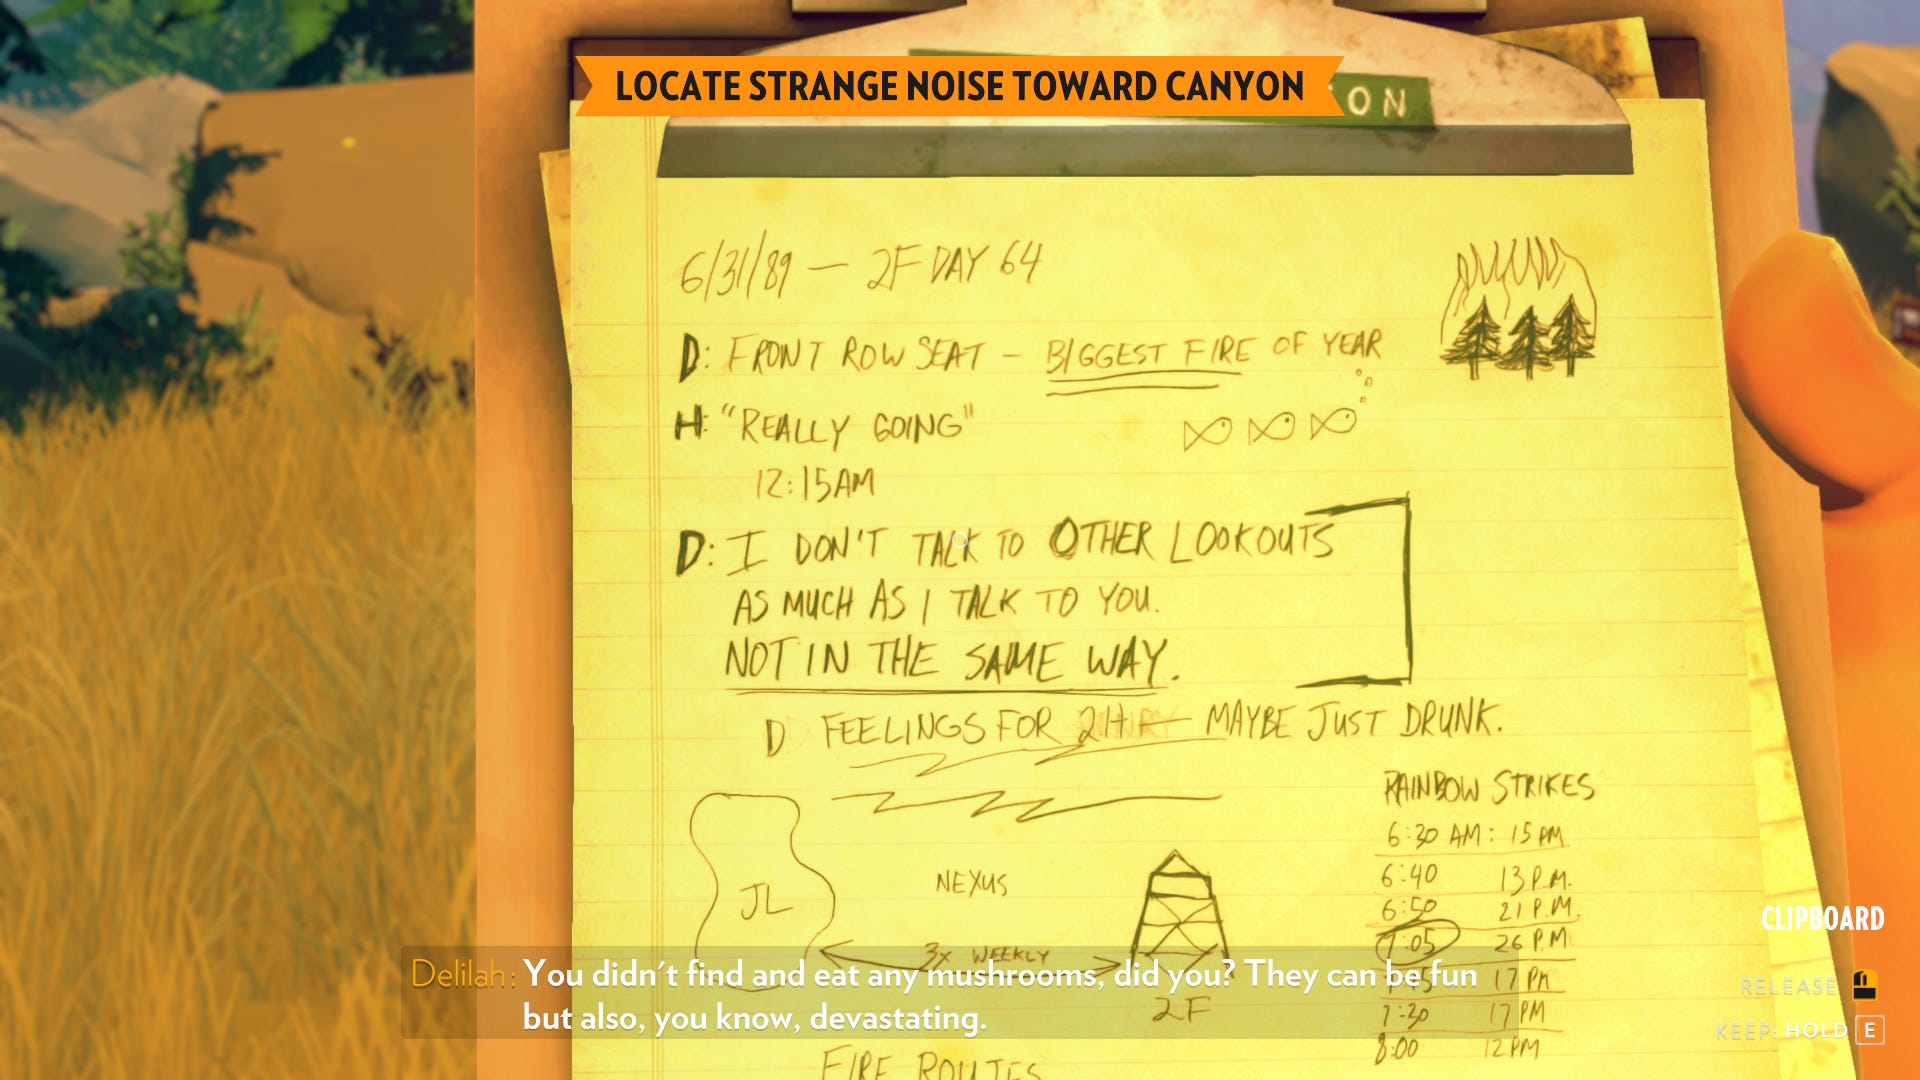 LOCATE STRANGE NOISE TOWARD CANYON
ON
6/31/89 — 2F DAY 64
D: FRONT ROW SEAT – BIGGEST FIRE OF YEAR
H: "REALLY GOING"
12:15AM
D: I DON'T TALK TO OTHER LOOKOUTS
AS MUCH AS I TALK TO YOU.
NOT IN THE SAME WAY.
D FEELINGS FOR — MAYBE JUST DRUNK.
RAINBOW STRIKES
6:30 AM: 15 PM
6:40 13 P.M.
6:50 21 P.M.
7:05 26 P.M.
17 PM
7:30 17 PM
8:00 12 PM
JL
NEXUS
3x WEEKLY
2F
FIRE ROUTES
Delilah: You didn't find and eat any mushrooms, did you? They can be fun
but also, you know, devastating.
CLIPBOARD
RELEASE
KEEP: HOLD E